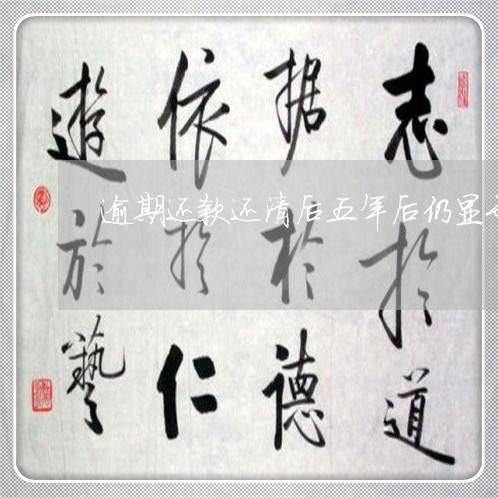 志於道
据於德
依於仁
遊於藝
逾期还款还清后五年后仍显